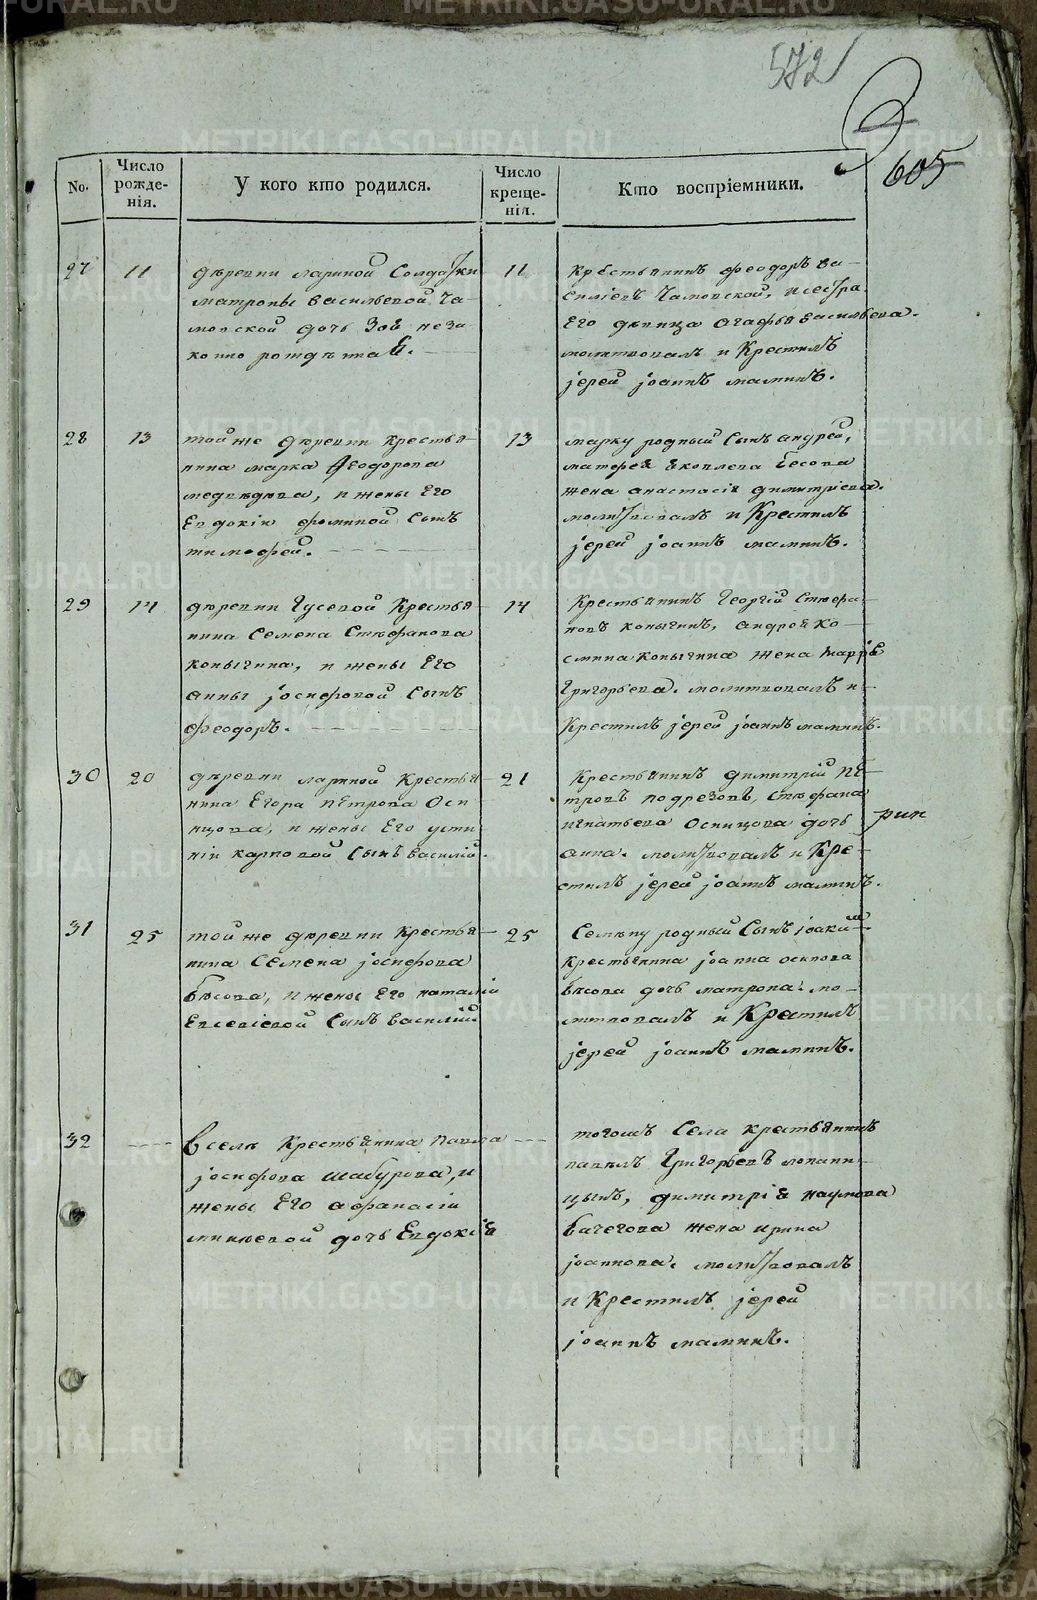 572
605
No.
Число рожденія.
У кого кто родился.
Число крещенія.
Кто воспріемники.
27
11
деревни лариной Солдатки
матроны василіевой Ча-
мовской дочь Зоя неза
конно рождѣнная.
11
крестьянинъ феодоръ ва-
силіевъ Чамовской, и сестра
Его дѣвица агафья васильева.
молитвовалъ и Крестилъ
јерей јоаннъ маминъ.
28
13
той же деревни крестья-
нина марка феодорова
медвѣдева, и жены Его
Евдокіи фоминой Сынъ
тимофей.
13
марку родный Сынъ андрей,
матфея яковлева бѣсова
жена анастасія димитріева.
молитвовалъ и Крестилъ
јерей јоаннъ маминъ.
29
14
деревни Гусевой Крестья-
нина Семена Стефанова
копыгина, и жены Его
анны јосифовой Сынъ
феодоръ.
14
Крестьянинъ Георгій Стефа-
новъ копыгинъ, андрея ко-
смина копыгина жена марія
Григорьева. молитвовалъ и
Крестилъ јерей јоаннъ маминъ.
30
20
деревни лариной Крестья-
нина Егора петрова Оси-
нцова, и жены Его усти-
ніи карповой Сынъ василій.
21
Крестьянинъ димитрій пе-
тровъ подрезовъ, Стефана
игнатьева Осинцова дочь
анна. молитвовалъ и Кре-
стилъ јерей јоаннъ маминъ.
31
25
той же деревни Крестья-
нина Семена јосифова
бѣсова, и жены Его наталіи
Евсевіевой Сынъ василій.
25
Семену родный Сынъ јоакимъ
крестьянина јоанна осипова
бѣсова дочь матрона. мо-
литвовалъ и Крестилъ
јерей јоаннъ маминъ.
32
в селѣ Крестьянина павла
јосифова шабурова, и
жены Его афанасіи
дочь Евдокія
тогожъ Села крестьянинъ
павелъ Григорьевъ лопани-
цынъ, димитрія наумова
бачегова жена ирина
јоаннова. молитвовалъ
и Крестилъ јерей
јоаннъ маминъ.
METRIKI.GASO-URAL.RU